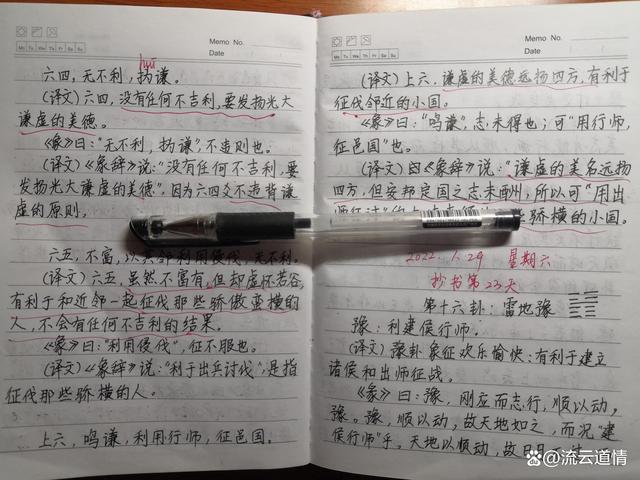 Memo No.
Mo Tu We Th Fr Sa Su
Date
huī
六四，无不利，㧑谦。
(译文)六四，没有任何不吉利，要发扬光大
谦虚的美德。
《象》曰："无不利，㧑谦"，不违则也。
(译文)《象辞》说："没有任何不吉利，要
发扬光大谦虚的美德"，因为六四爻不违背谦
虚的原则。
六五，不富，以其邻利用侵伐，无不利。
(译文)六五，虽然不富有，但却虚怀若谷，
有利于和近邻一起征伐那些骄傲蛮横的
人，不会有任何不吉利的结果。
《象》曰："利用侵伐"，征不服也。
(译文)《象辞》说："利于出兵讨伐"，是指
征伐那些骄横的人。
上六，鸣谦，利用行师，征邑国。
Memo No.
Mo Tu We Th Fr Sa Su
Date
(译文)上六，谦虚的美德远扬四方，有利于
征伐邻近的小国。
《象》曰："鸣谦"，志未得也；可"用行师，
征邑国"也。
(译文)《象辞》说："谦虚的美名远扬
四方，但安邦定国之志未酬，所以可"用出
骄横的小国。
2022.1.29 星期六
抄书第23天
第十六卦：雷地豫
豫：利建侯行师。
(译文)豫卦象征欢乐愉快：有利于建立
诸侯和出师征战。
《彖》曰：豫，刚应而志行，顺以动，
豫。豫，顺以动，故天地如之，而况"建
侯行师"乎。天地以顺动，故日月
@流云道情